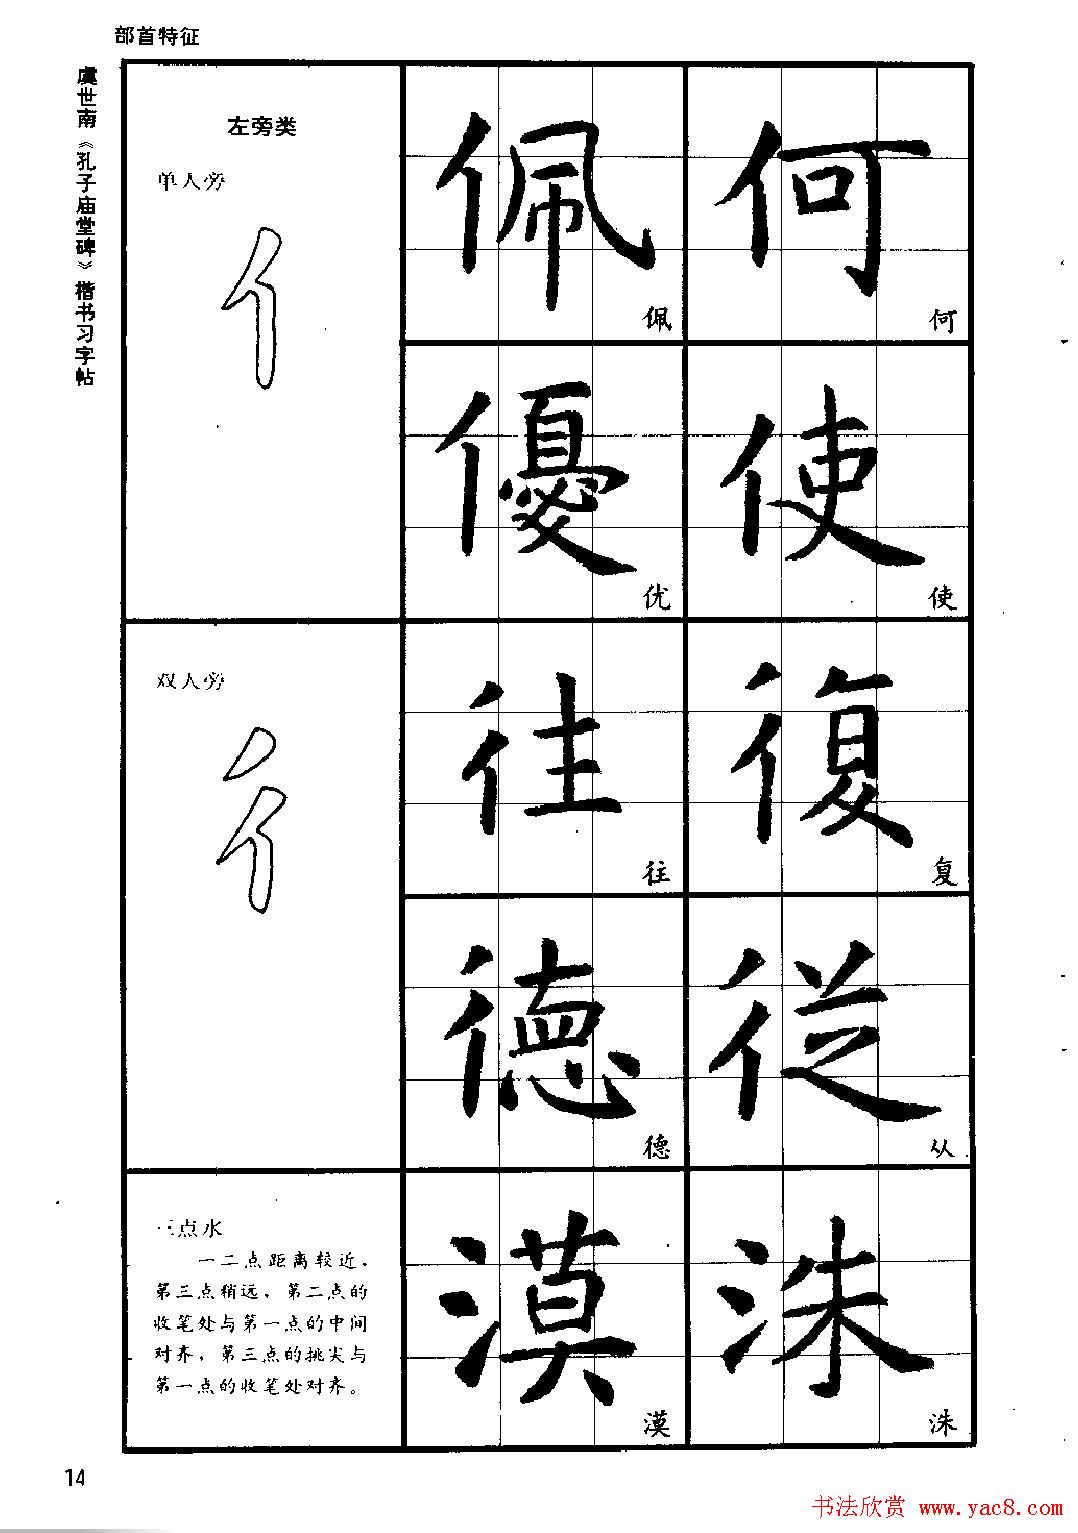 部首特征
虞世南《孔子庙堂碑》楷书习字帖
左旁类
单人旁
佩 何
佩 何
優 使
优 使
双人旁
往 復
往 复
德 従
德 从
三点水
一二点距离较近，
第三点稍远，第二点的
收笔处与第一点的中间
对齐，第三点的挑尖与
第一点的收笔处对齐。
漠 洙
漠 洙
14
书法欣赏 www.yac8.com